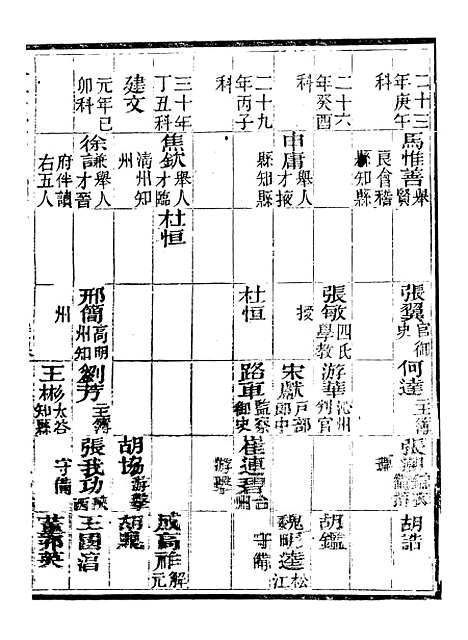 二十三年庚午 馬惟善舉賢 張翼官御史 何達主簿 胡誥
科 良會稽縣知縣
二十六年癸酉 張敏四氏學教 游華沁州判官 胡鑑
科 申庸舉人才掖縣知縣 授 宋獻戶部郎中 魏明遠松江
二十九年丙子 杜恒 路車監察御史 崔連碧台州 守備
科 游擊
三十年丁丑科 焦欽舉人才臨清州知 杜恒 成高祚解元
建文 州 胡協游擊
元年己卯科 徐謙舉人才晉府伴讀 邢簡高明州知 劉芳主簿 張我功陝西
右五人 州 王彬太谷知縣 守備